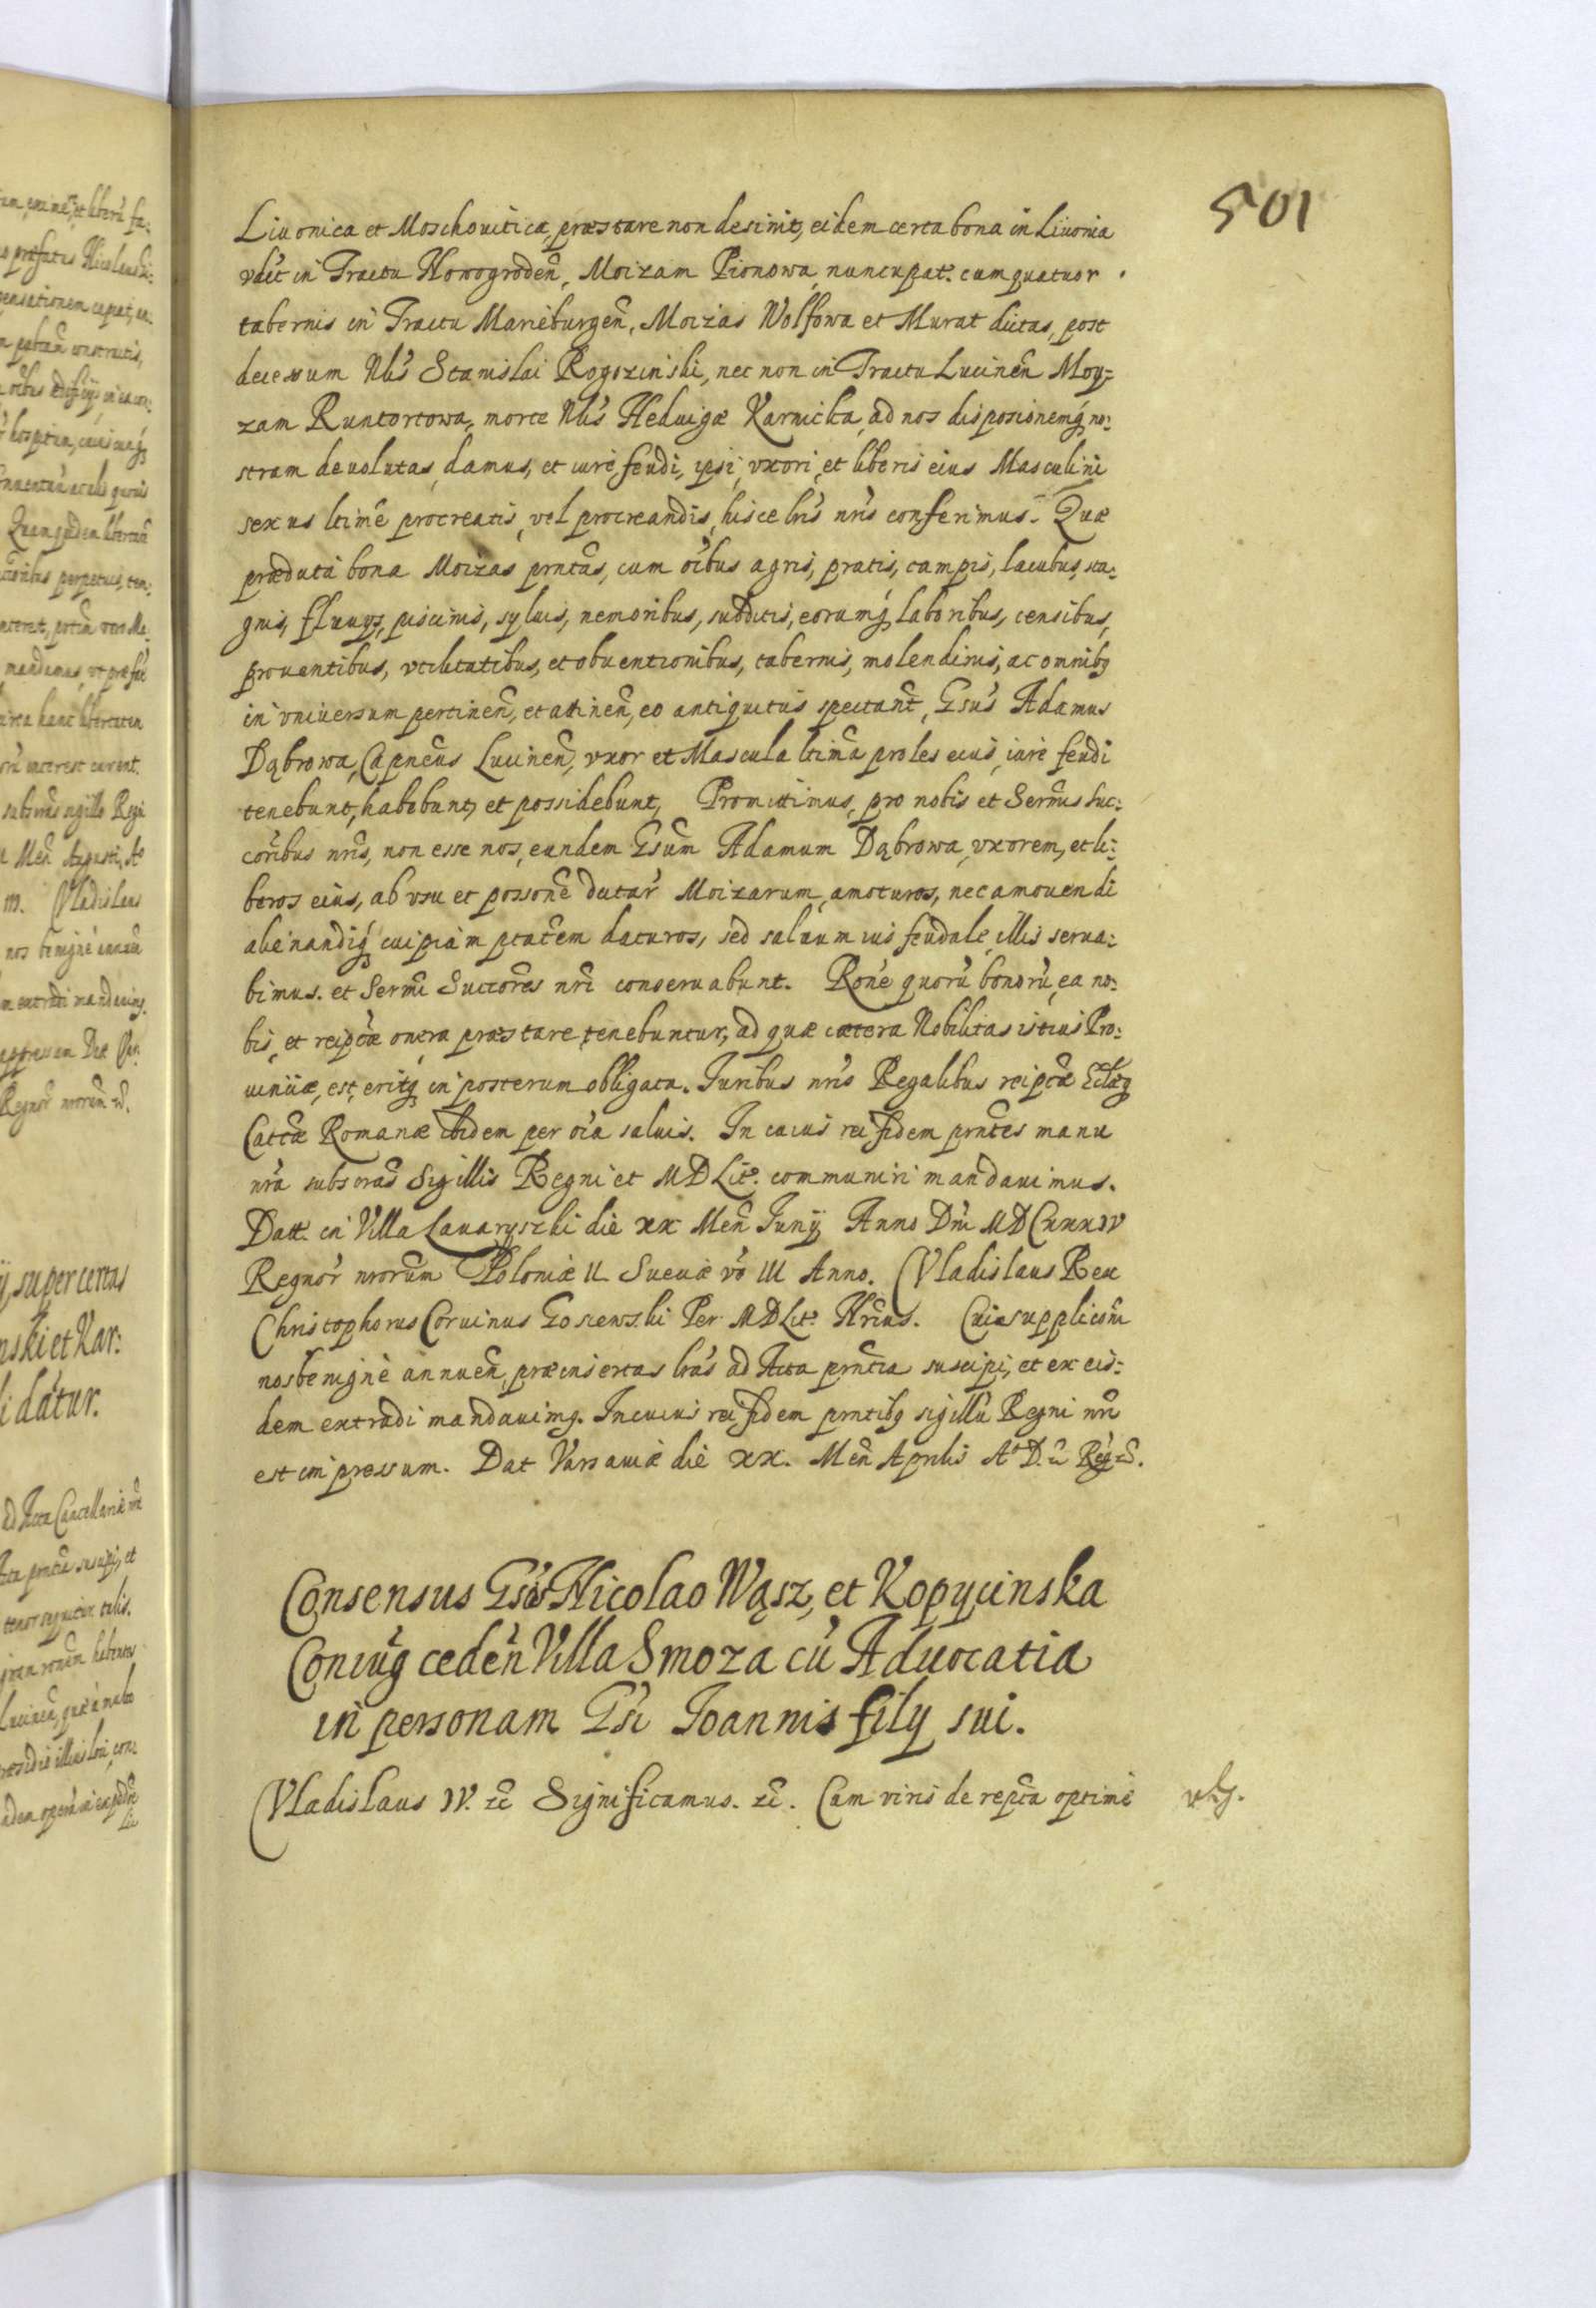 501
Liuonica et Moschouitica, præstare non desinit, eidem certa bona in Liuonia
vdlt in Tractu Nowogrodeñ, Moizam Pionowa nuncupat. cum quatuor
tabernis in Tractu Marieburgeñ, Moizas Wolfowa et Murat dictas, post
decessum Nlis Stanislai Rogozinski, nec non in Tractu Lucineñ Moy=
zam Runtortowa, morte Nlis Heduigæ Karnicka, ad nos disposionemq no:
stram deuolutas, damus, et iure feudi, ipsi, vxori, et liberis eius Masculini
sexus ltime procreatis, vel procreandis, hisce lris nris conferimus. Quæ
prædicta bona Moizas prntas, cum oibus agris, pratis, campis, lacubus, sta:
gnis, fluuys, piscinis, syluis, nemoribus, subditis, eorumq laboribus, censibus,
prouentibus, vtilitatibus, et obuentionibus, tabernis, molendinis, ac omnibq
in vniuersum pertineñ, et attineñ, eo antiquitus spectant, Gsus Adamus
Dąbrowa, Capneus Lucineñ, vxor et Mascula ltima proles eius, iure feudi
tenebunt, habebunt, et possidebunt, Promittimus, pro nobis et Sermis suc:
coribus nris, non esse nos, eundem Gsum Adamum Dąbrowa, vxorem, et li:
beros eius, ab vsu et possone dictar Moizarum, amoturos, nec amouendi
alienandiq cuipiam ptatem daturos, sed saluum ius feudale illis serua:
bimus. et Sermi Succores nri conseruabunt. Rone quorũ bonorũ, ea no:
bis, et reipcæ onera præstare tenebuntur, ad quæ cætera Nobilitas istius Pro:
uinciæ, est, eritq in posterum obligata. Juribus nris Regalibus reipcæ Eclæq
Catcæ Romanæ ibidem per oia saluis. In cuius rei fidem prntes manu
nra subscras Sigillis Regni et MDLit. communiri mandauimus.
Datt. in Villa Lauaryszki die xx Meñ Junij Anno Dni MDCxxxIV
Regnor nrorum Poloniæ II Sueciæ vo III Anno. Vladislaus Rex
Christophorus Coruinus Gosiewski Per MDLit. Nrius. Cui supplicõni
nos benignè annueñ, præinsertas lras ad Acta prntia suscipi, et ex eis:
dem extradi mandauimq. In cuius rei fidem prntibq sigillũ Regni nri
est impressum. Dat Varsauiæ die xx. Meñ Aprilis Ao D. ut Reg ut.
Consensus Gso Nicolao Wąsz, et Kopycinska
Coniug cedeñ Villa Smoza cũ Aduocatia
in personam Gsi Joannis fily sui.
Vladislaus IV. etc Significamus. etc. Cum viris de repca optime